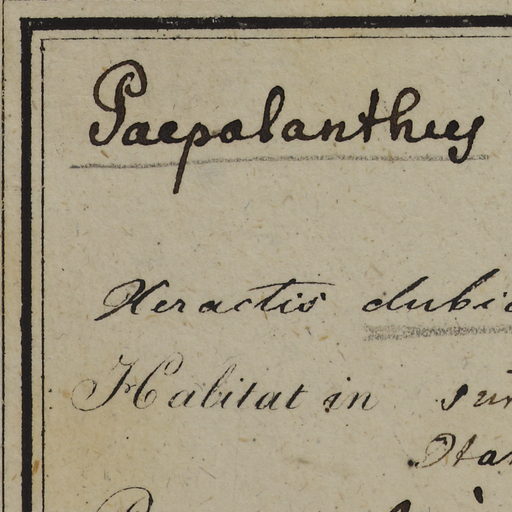 Paepalanthus
Xeractis dubia
Habitat in